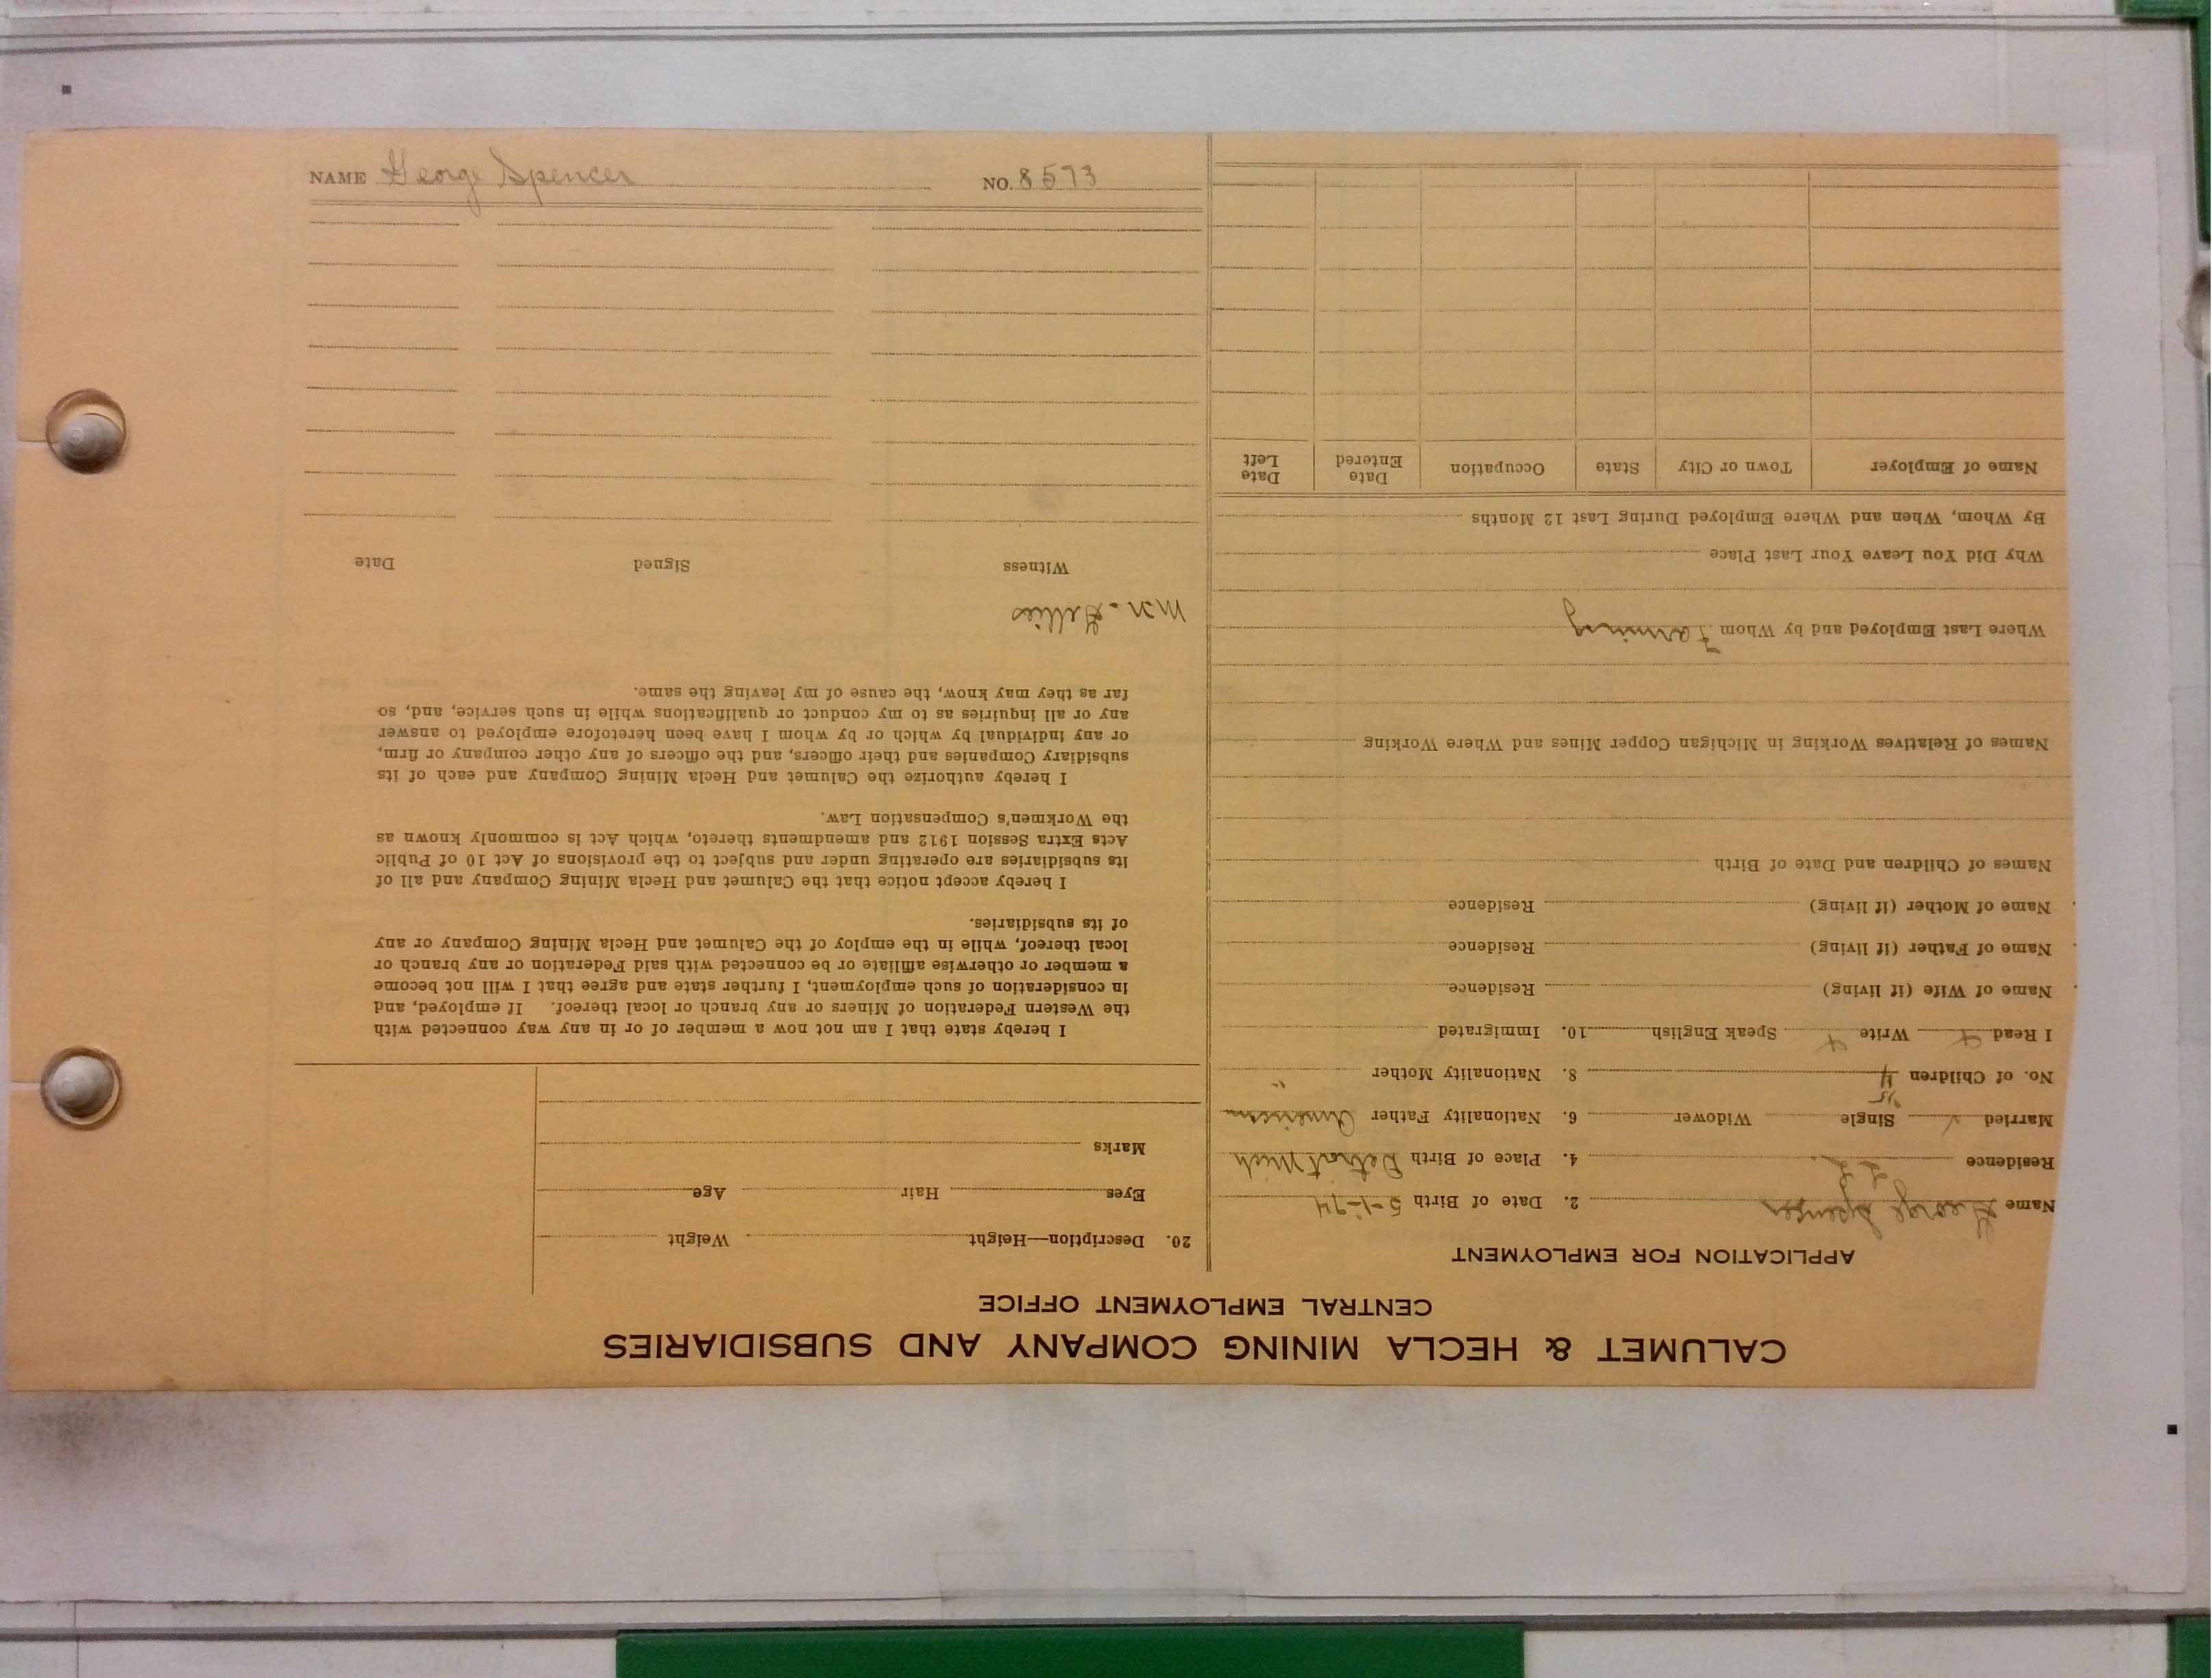 NAME George Spencer NO. 8573
CALUMET & HECLA MINING COMPANY AND SUBSIDIARIES
CENTRAL EMPLOYMENT OFFICE
APPLICATION FOR EMPLOYMENT
Name George Spencer 2. Date of Birth 5-1-94
Residence L. L. 4. Place of Birth Detroit Mich
Married ✓ Single Widower 6. Nationality Father American
No. of Children 4 8. Nationality Mother "
I Read Write Speak English 10. Immigrated
Name of Wife (if living) Residence
Name of Father (if living) Residence
Name of Mother (if living) Residence
Names of Children and Date of Birth
Names of Relatives Working in Michigan Copper Mines and Where Working
Where Last Employed and by Whom Farming
Why Did You Leave Your Last Place
By Whom, When and Where Employed During Last 12 Months
Name of Employer Town or City State Occupation Date Entered Date Left
20. Description—Height Weight
Eyes Hair Age
Marks
I hereby state that I am not now a member of or in any way connected with
the Western Federation of Miners or any branch or local thereof. If employed, and
in consideration of such employment, I further state and agree that I will not become
a member or otherwise affiliate or be connected with said Federation or any branch or
local thereof, while in the employ of the Calumet and Hecla Mining Company or any
of its subsidiaries.
I hereby accept notice that the Calumet and Hecla Mining Company and all of
its subsidiaries are operating under and subject to the provisions of Act 10 of Public
Acts Extra Session 1912 and amendments thereto, which Act is commonly known as
the Workmen's Compensation Law.
I hereby authorize the Calumet and Hecla Mining Company and each of its
subsidiary Companies and their officers, and the officers of any other company or firm,
or any individual by which or by whom I have been heretofore employed to answer
any or all inquiries as to my conduct or qualifications while in such service, and, so
far as they may know, the cause of my leaving the same.
Witness Signed Date